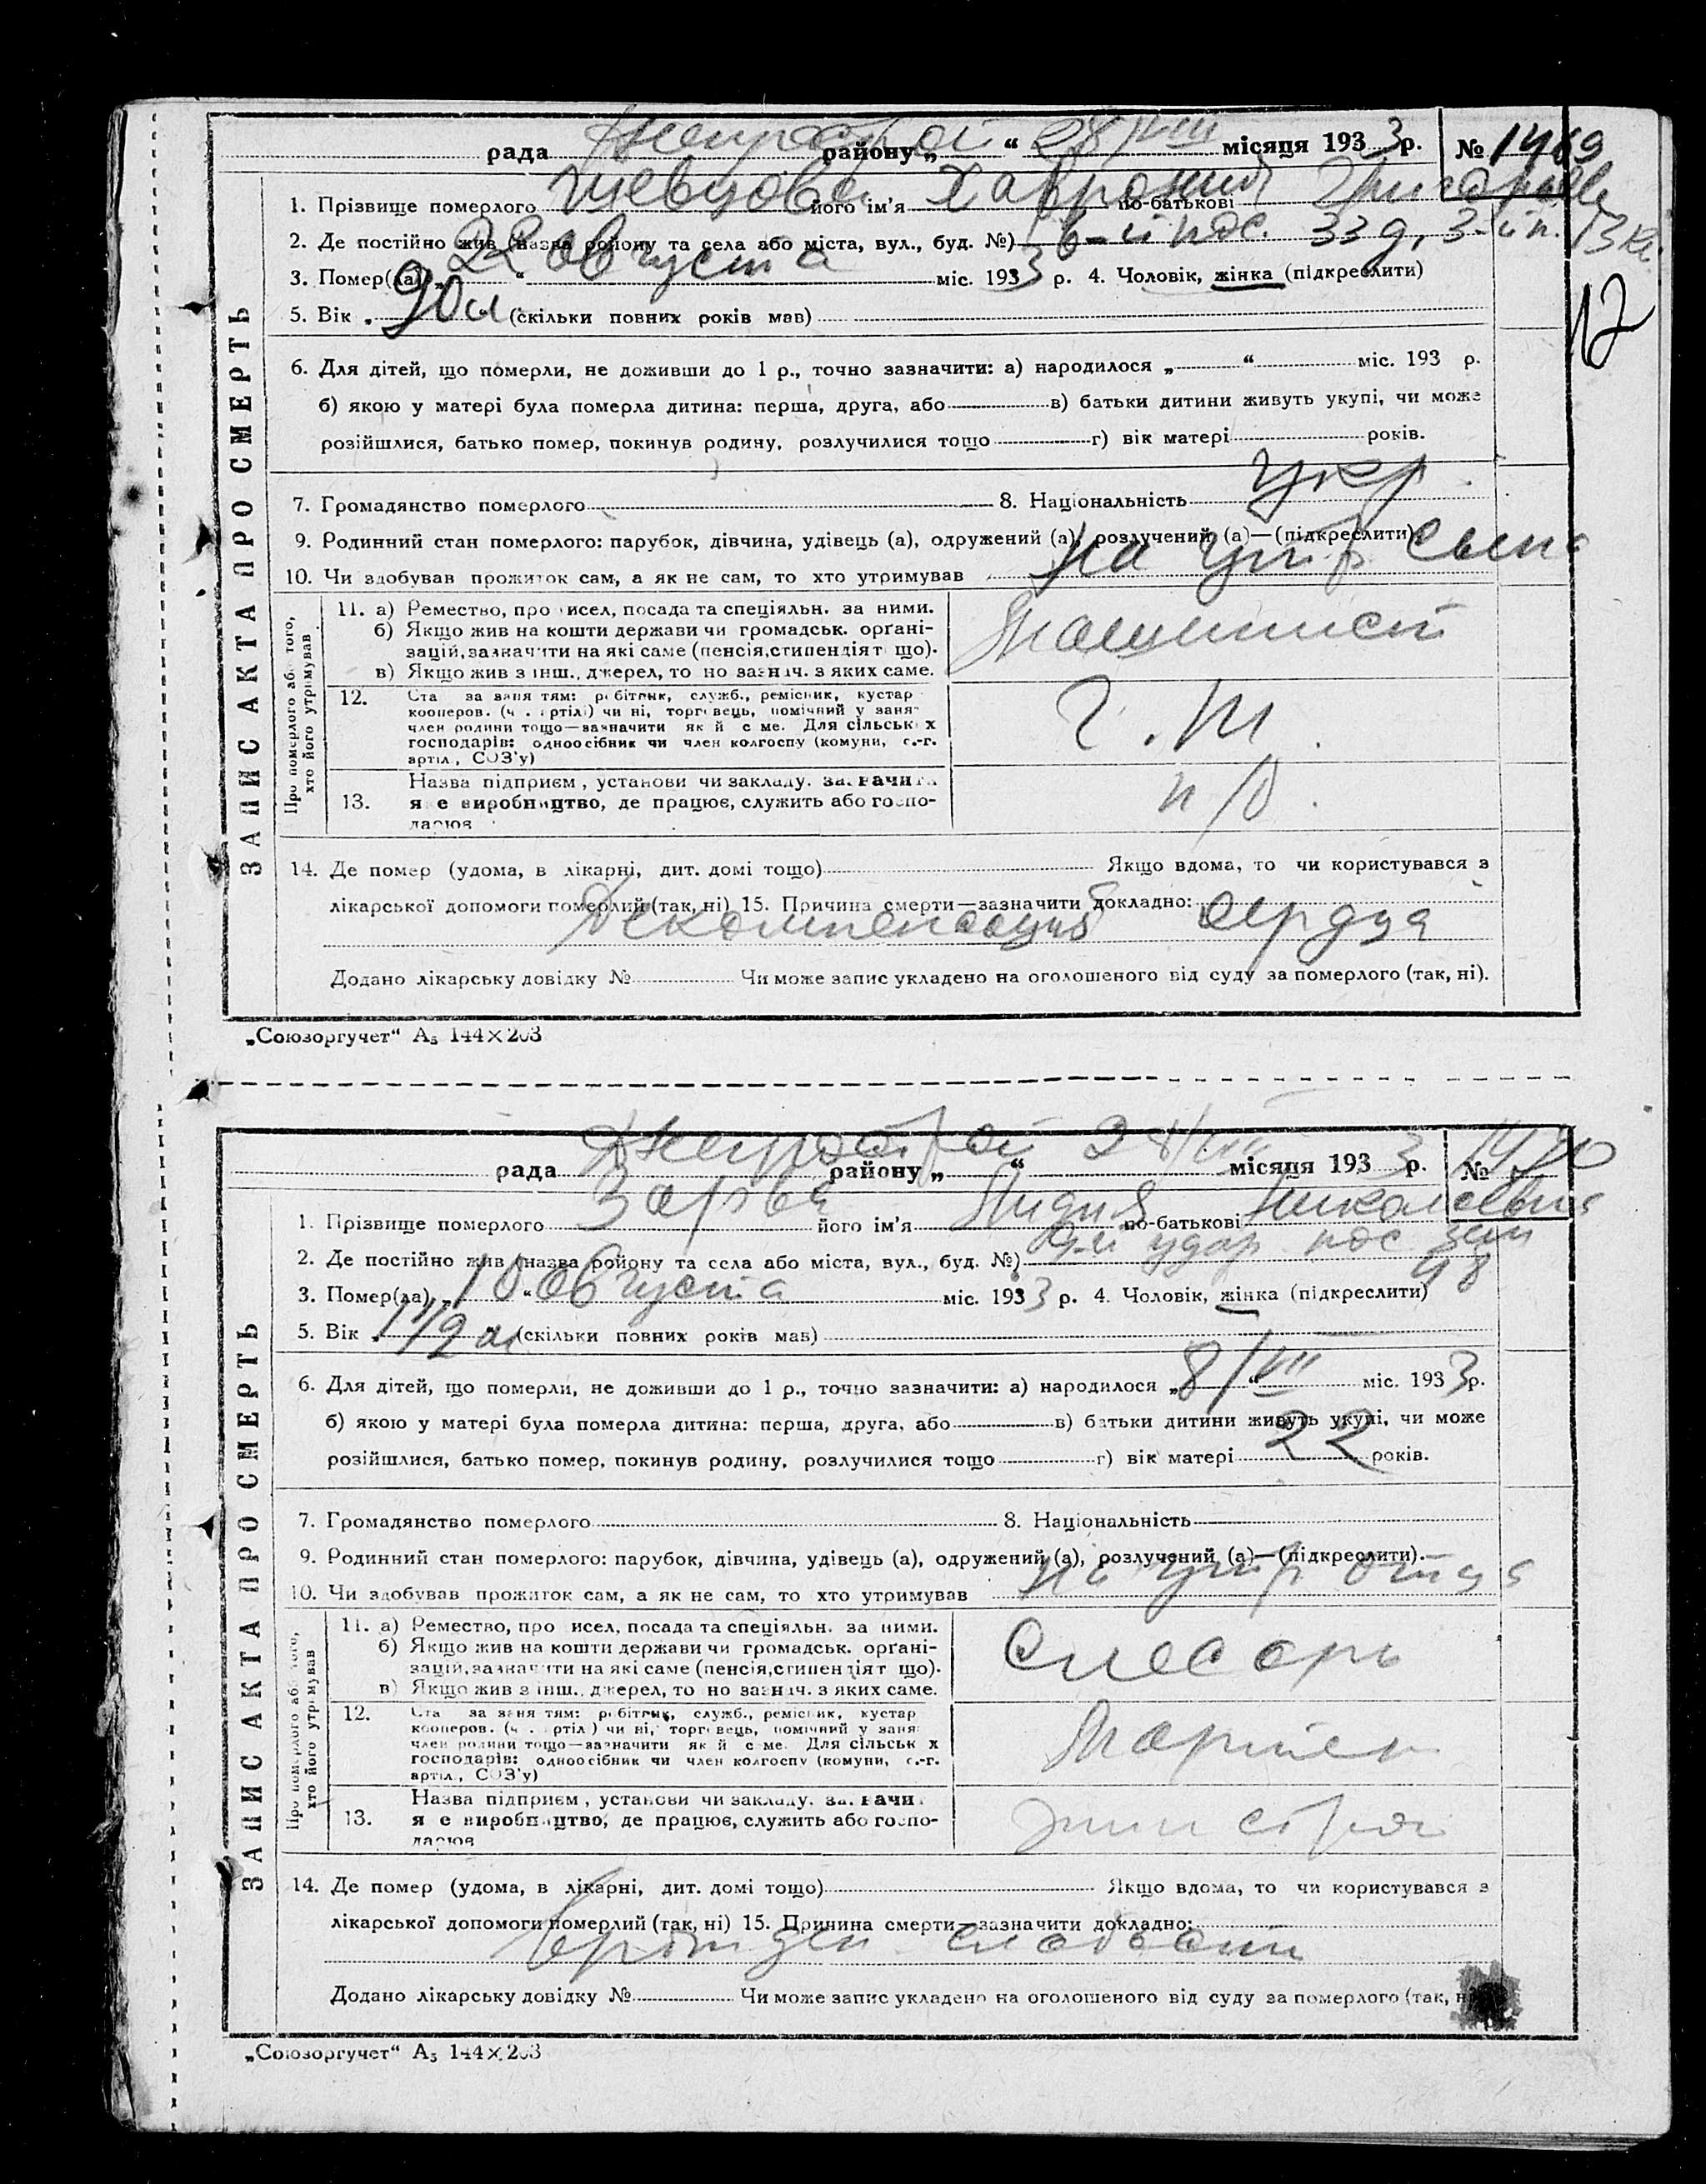 рада Днепрострой району „ “ 28/VIII місяця 1933 р. № 1469
1. Прізвище померлого Шевцова його ім'я Хаврония по-батькові
2. Де постійно жив (назва району та села або міста, вул., буд. №) 6-й пос. 33 д, 3-й п. 13 кв.
3. Помер(ла) „ 28 августа “ міс. 1933 р. 4. Чоловік, жінка (підкреслити)
17
5. Вік 90 л (скільки повних років мав)
6. Для дітей, що померли, не доживши до 1 р., точно зазначити: а) народилося „ “ міс. 193 р.
б) якою у матері була померла дитина: перша, друга, або в) батьки дитини живуть укупі, чи може
розійшлися, батько помер, покинув родину, розлучилися тощо г) вік матері років.
7. Громадянство померлого 8. Національність укр.
9. Родинний стан померлого: парубок, дівчина, удівець (а), одружений (а), розлучений (а)—(підкреслити)
10. Чи здобував прожиток сам, а як не сам, то хто утримував на утр сына
ЗАПИС АКТА ПРО СМЕРТЬ
Про померлого або того, хто його утримував
11. а) Ремество, про исел, посада та спеціяльн. за ними.
б) Якщо жив на кошти держави чи громадськ. орґані-
зацій, зазначити на які саме (пенсія, стипендія т що).
в) Якщо жив з інш. джерел, то но зазнач. з яких саме.
Машинист
12. Ста за заня тям: робітник, служб., ремісник, кустар
кооперов. (ч . артілі) чи ні, торговець, помічний у заня-
член родини тощо—зазначити як й с ме. Для сільськ х
господарів: одноосібник чи член колгоспу (комуни, с.-г.
артіл., СОЗ'у)
13. Назва підприєм , установи чи закладу. за. начи
я е виробництво, де працює, служить або госпо-
дарює
14. Де помер (удома, в лікарні, дит. домі тощо) Якщо вдома, то чи користувався з
лікарської допомоги померлий (так, ні) 15. Причина смерти—зазначити докладно:
Декомпенсация сердца
Додано лікарську довідку № Чи може запис укладено на оголошеного від суду за померлого (так, ні).
„Союзоргучет“ А5 144×203
рада Днепрострой району „ “ 28/VIII місяця 1933 р. № 1470
1. Прізвище померлого його ім'я Лидия по-батькові Николаевна
2. Де постійно жив (назва району та села або міста, вул., буд. №) удар пос зем
48
3. Помер(ла) „ 10 августа “ міс. 1933 р. 4. Чоловік, жінка (підкреслити)
5. Вік 1 1/2 м (скільки повних років мав)
6. Для дітей, що померли, не доживши до 1 р., точно зазначити: а) народилося „ 8/VII “ міс. 1933 р.
б) якою у матері була померла дитина: перша, друга, або в) батьки дитини живуть укупі, чи може
розійшлися, батько помер, покинув родину, розлучилися тощо г) вік матері 22 років.
7. Громадянство померлого 8. Національність
9. Родинний стан померлого: парубок, дівчина, удівець (а), одружений (а), розлучений (а)—(підкреслити).
10. Чи здобував прожиток сам, а як не сам, то хто утримував на утр отца
ЗАПИС АКТА ПРО СМЕРТЬ
Про померлого або того, хто його утримував
11. а) Ремество, про исел, посада та спеціяльн. за ними.
б) Якщо жив на кошти держави чи громадськ. орґані-
зацій, зазначити на які саме (пенсія, стипендія т що).
в) Якщо жив з інш. джерел, то но зазнач. з яких саме.
Слесарь
12. Ста за заня тям: робітник, служб., ремісник, кустар
кооперов. (ч . артіл ) чи ні, торговець, помічний у заня
член родини тощо—зазначити як й с ме. Для сільськ х
господарів: одноосібник чи член колгоспу (комуни, с.-г.
артіл., СОЗ'у)
Мартен
13. Назва підприєм , установи чи закладу. за. начи
я е виробництво, де працює, служить або госпо-
дарює
14. Де помер (удома, в лікарні, дит. домі тощо) Якщо вдома, то чи користувався з
лікарської допомоги померлий (так, ні) 15. Причина смерти—зазначити докладно:
слабости
Додано лікарську довідку № Чи може запис укладено на оголошеного від суду за померлого (так,
„Союзоргучет“ А5 144×203